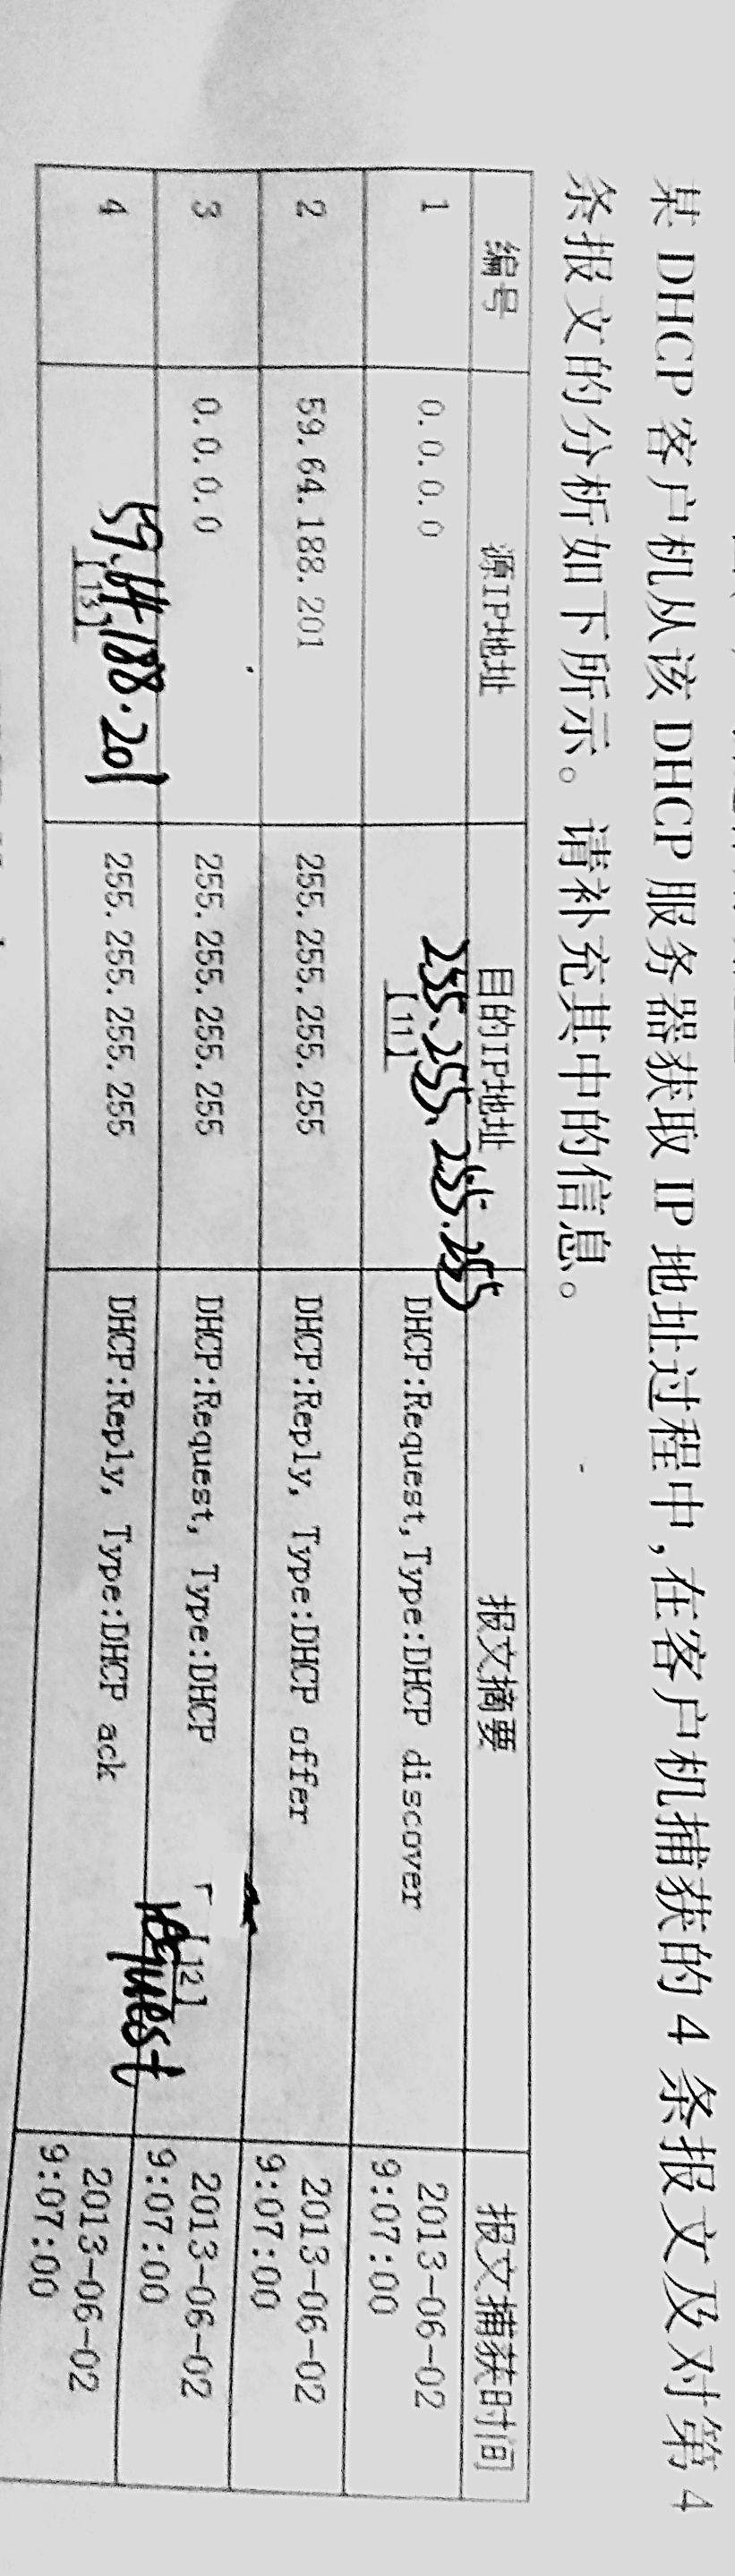 某 DHCP 客户机从该 DHCP 服务器获取 IP 地址过程中,在客户机捕获的 4 条报文及对第 4
条报文的分析如下所示。请补充其中的信息。
编号 源IP地址 目的IP地址 报文摘要 报文捕获时间
1 0.0.0.0 【11】 255.255.255.255 DHCP:Request,Type:DHCP discover 2013-06-02
9:07:00
2 59.64.188.201 255.255.255.255 DHCP:Reply, Type:DHCP offer 2013-06-02
9:07:00
3 0.0.0.0 255.255.255.255 DHCP:Request, Type:DHCP 【12】 request 2013-06-02
9:07:00
4 【13】 59.64.188.201 255.255.255.255 DHCP:Reply, Type:DHCP ack 2013-06-02
9:07:00